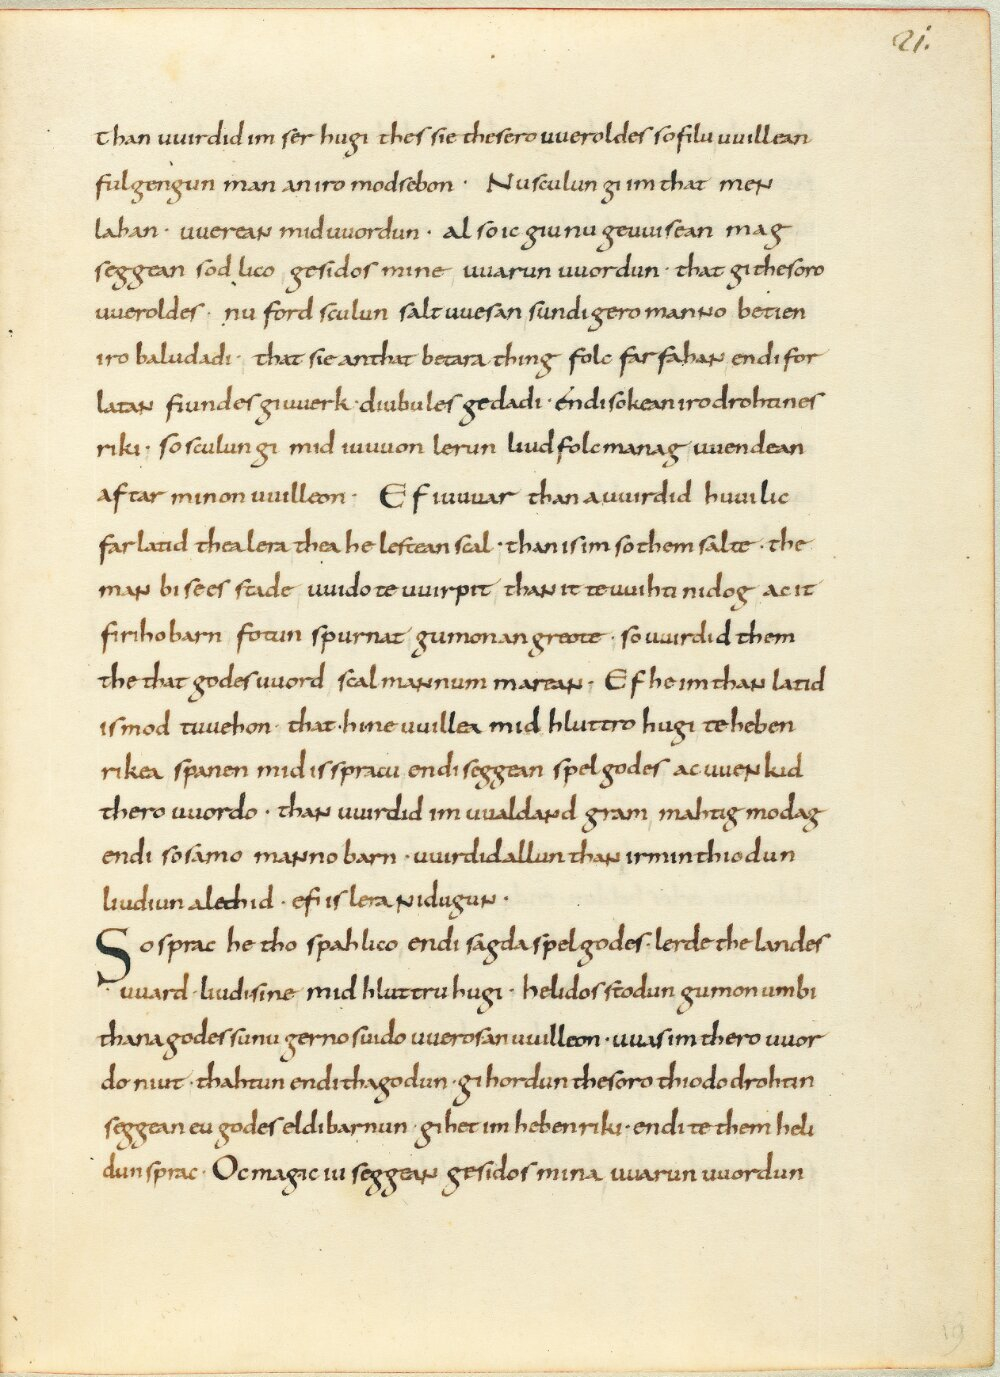 21.
than uuirdid im ser hugi thes sie thesero uueroldes so filu uuillean
fulgengun man an iro modsebon · Nu sculun gi im that men
lahan · uuerean mid uuordun · al so ic giu nu geuuisean mag
seggean sodlico gesidos mine uuarun uuordun · that gi thesoro
uueroldes · nu ford sculun salt uuesan sundigero manno betien
iro baludadi · that sie an that betara thing folc farfahan endi for
latan fiundes giuuerk · diubules gedadi · éndi sokean iro drohtines
riki · so sculun gi mid iuuuon lerun liudfolc manag uuendean
aftar minon uuilleon · Ef iuuuar than auuirdid huuilic
farlatid thea lera thea he lestean scal · than is im so them salte · the
man bi sees stade uuido te uuirpit than it te uuihti ni dog ac it
firiho barn fotun spurnat gumon an greote · so uuirdid them
the that godes uuord scal mannum marean · Ef he im than latid
is mod tuuehon · that · hi ne uuillea mid hluttro hugi te heben
rikea spanen mid is spracu endi seggean spel godes ac uuenkid
thero uuordo · than uuirdid im uualdand gram mahtig modag
endi so samo manno barn · uuirdid allun than irminthiodun
liudiun alethid · ef is lera ni dugun ·
So sprac he tho spahlico endi sagda spel godes · lerde the landes
uuard · liudi sine mid hluttru hugi · helidos stodun gumon umbi
thana godes sunu gerno suido uueros an uuilleon · uuas im thero uuor
do niut · thahtun endi thagodun · gihordun thesoro thiodo drohtin
seggean eu godes eldibarnun · gihet im hebenriki · endi te them heli
dun sprac · Oc mag ic iu seggean gesidos mina uuarun uuordun
19